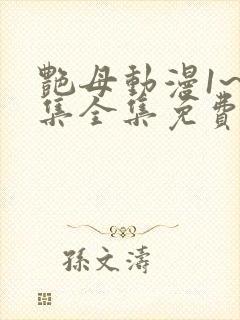 艷母動漫1~
集全集免費
孫文濤